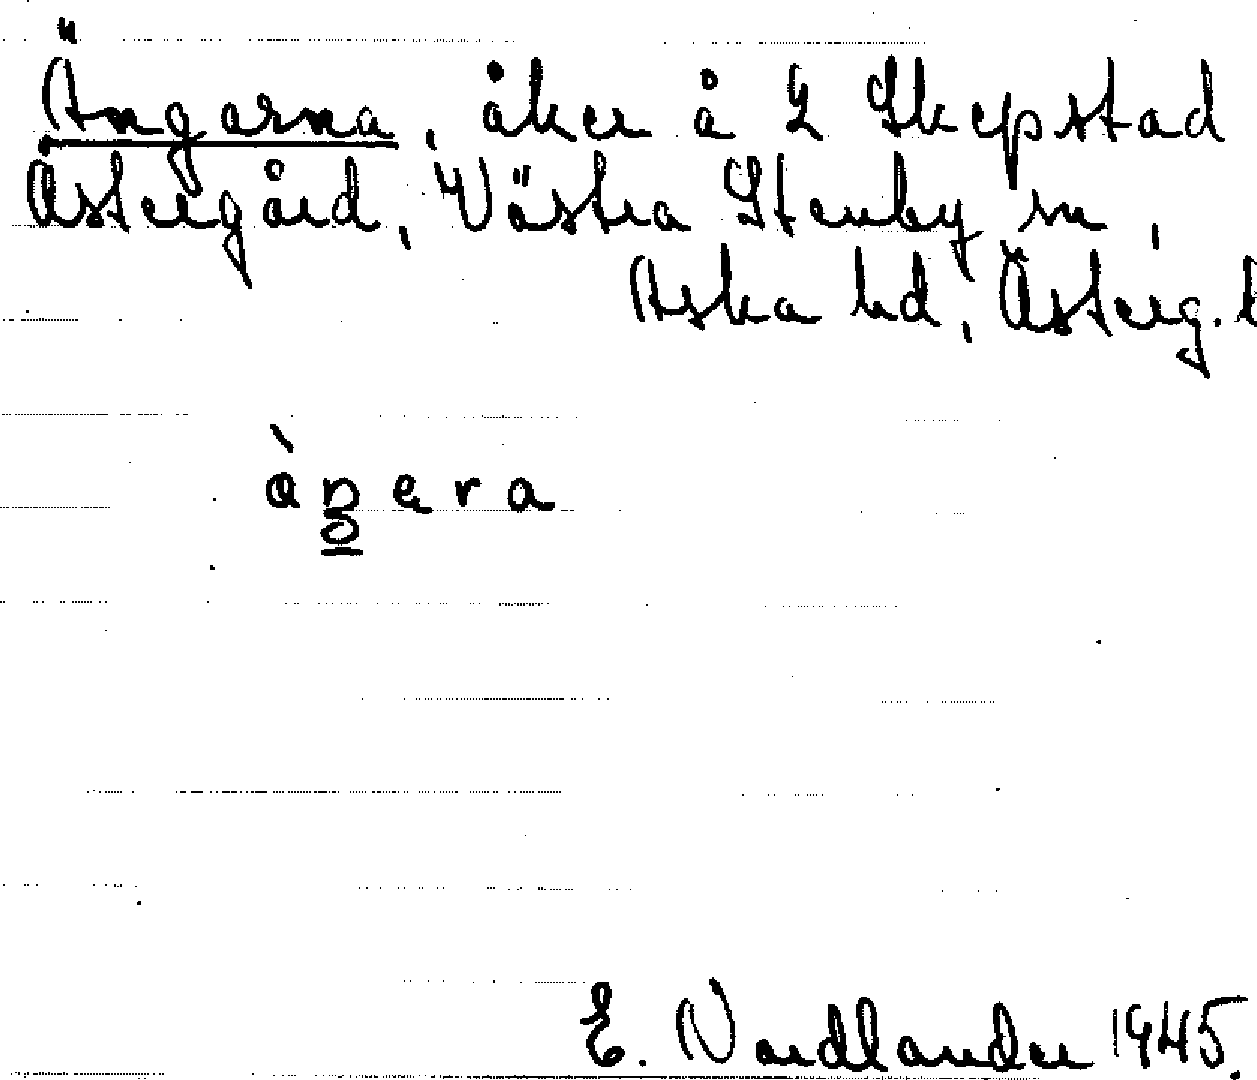 Ängarna, åker å 2 Skepstad
Östergård, Västra Stenby sn,
Aska hd, Österg. l
àŋera
E. Nordlander 1945.